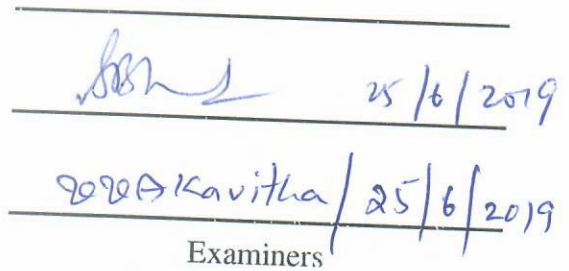 25/6/2019
Kavitha/25/6/2019
Examiners